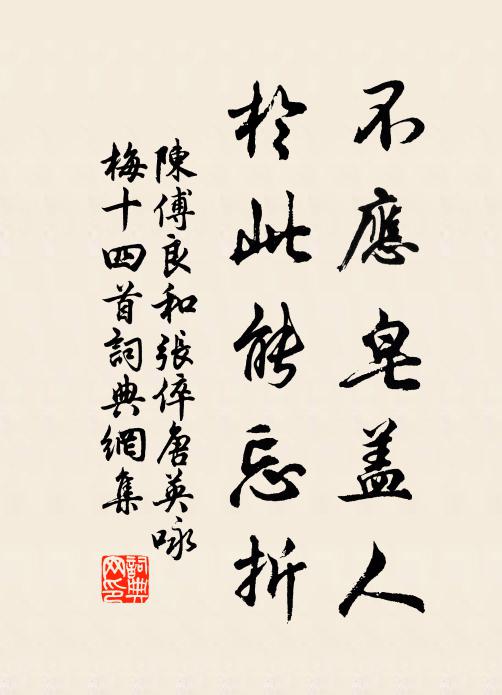 不應皂盖人
於此能忘折
陳傅良和張倅唐英咏
梅十四首詞典網集
詞典网印